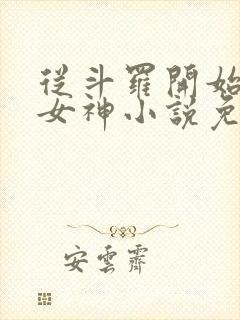 從斗羅開始
女神小說免
安雲齋